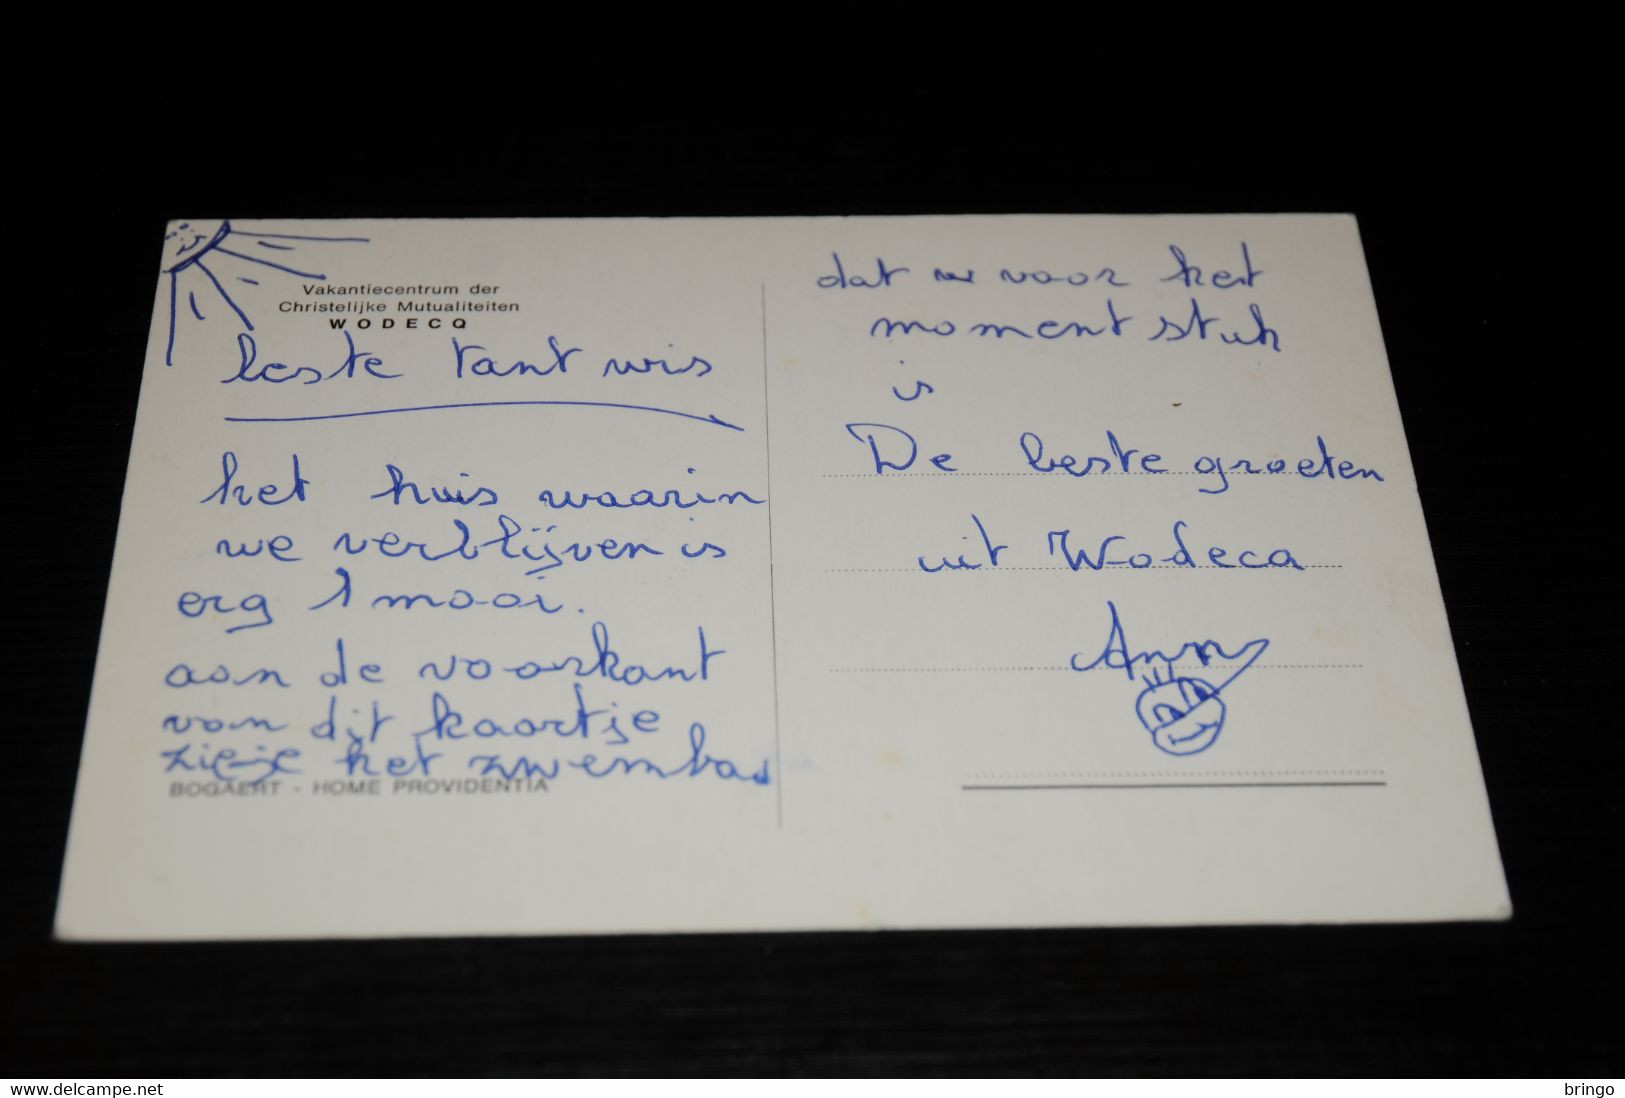 Vakantiecentrum der
Christelijke Mutualiteiten
WODECQ
beste tant wis
het huis waarin
we verblijven is
erg mooi.
aan de voorkant
van dit kaartje
zie je het zwembad
BOGAERT - HOME PROVIDENTIA
dat voor het
moment stuk
is
De beste groeten
uit Wodeca
Ann
www.delcampe.net
bringo